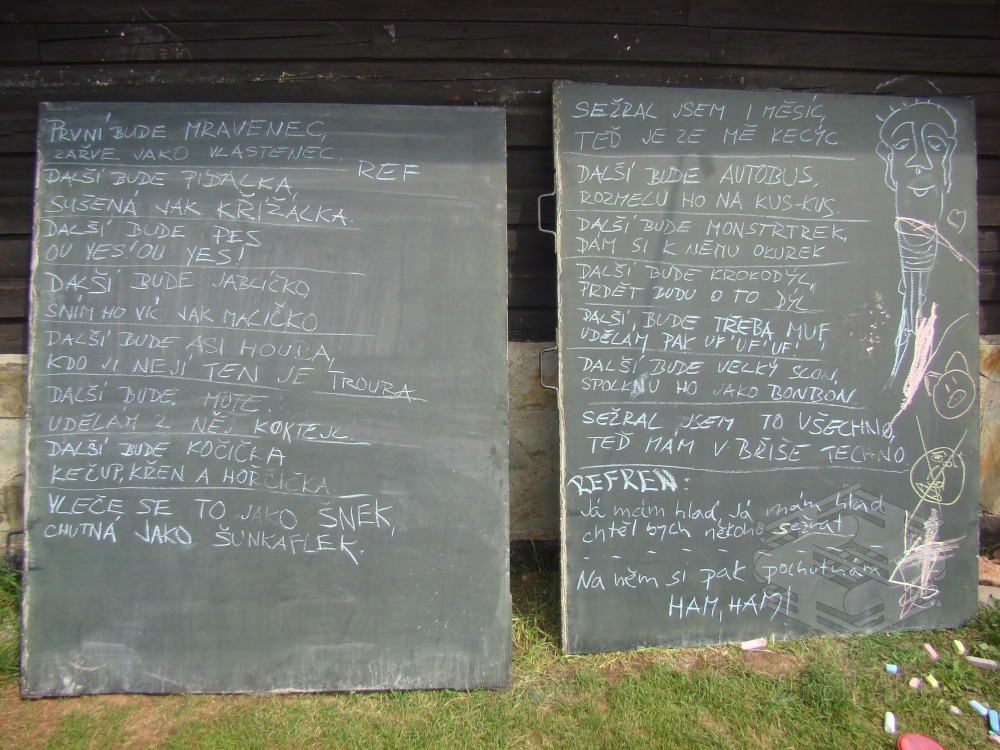 PRVNÍ BUDE MRAVENEC,
ZAŘVE JAKO VLASTENEC.
REF
DALŠÍ BUDE PÍĎALKA,
SUŠENÁ JAK KŘÍŽALKA.
DALŠÍ BUDE PES
OU YES! OU YES!
DALŠÍ BUDE JABLÍČKO,
SNÍM HO VÍC JAK MALIČKO
DALŠÍ BUDE ASI HOUBA,
KDO JI NEJÍ TEN JE TROUBA
DALŠÍ BUDE MUTE.
UDĚLÁM Z NĚJ KOKTEJL
DALŠÍ BUDE KOČIČKA
KEČUP, KŘEN A HOŘČIČKA
VLEČE SE TO JAKO ŠNEK,
CHUTNÁ JAKO ŠUNKAFLEK.
SEŽRAL JSEM I MĚSÍC,
TEĎ JE ZE MĚ KECYC.
DALŠÍ BUDE AUTOBUS,
ROZMELU HO NA KUS-KUS.
DALŠÍ BUDE MONSTRTREK,
DÁM SI K NĚMU OKUREK
DALŠÍ BUDE KROKODÝL,
PRDĚT BUDU O TO DÝL
DALŠÍ BUDE TŘEBA MUF,
UDĚLÁM PAK UF! UF! UF!
DALŠÍ BUDE VELKÝ SLON,
SPOLKNU HO JAKO BONBON
SEŽRAL JSEM TO VŠECHNO,
TEĎ MÁM V BŘIŠE TECHNO.
REFREN:
Já mám hlad, Já mám hlad
chtěl bych někoho sežrat
- - - - - - - -
Na něm si pak pochutnám
HAM, HAM!